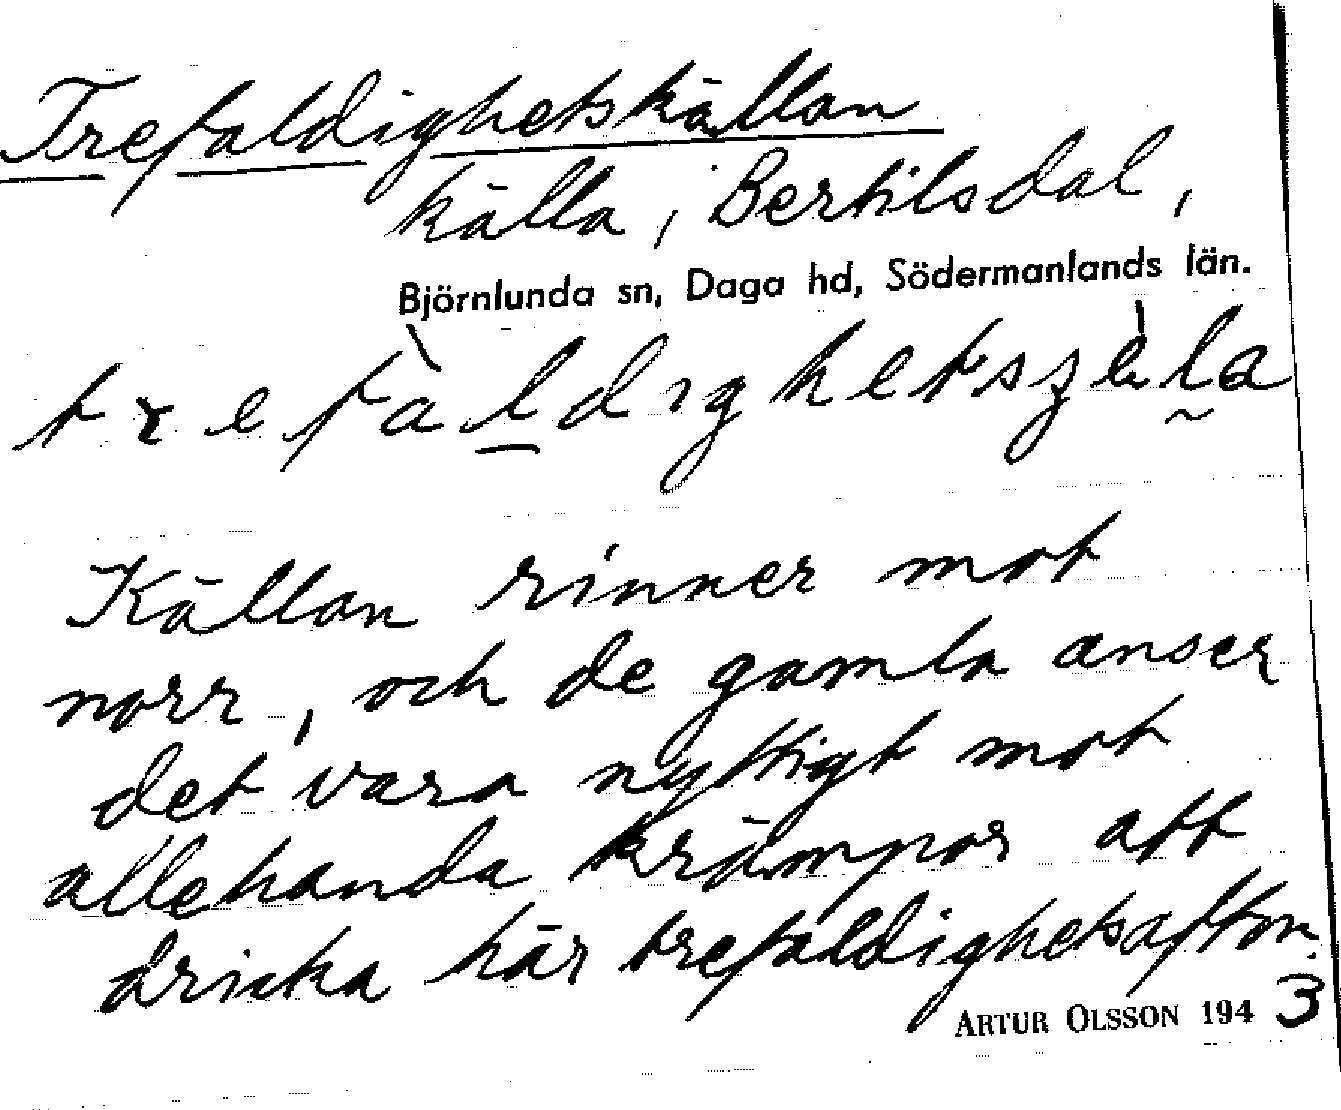 Trefaldighetskällan
källa, Bertilsdal,
Björnlunda sn, Daga hd, Södermanlands län.
Källan rinner mot
norr, och de gamla anser
det vara nyttigt mot
allehanda krämpor att
dricka här trefaldighetsafton.
ARTUR OLSSON 1943